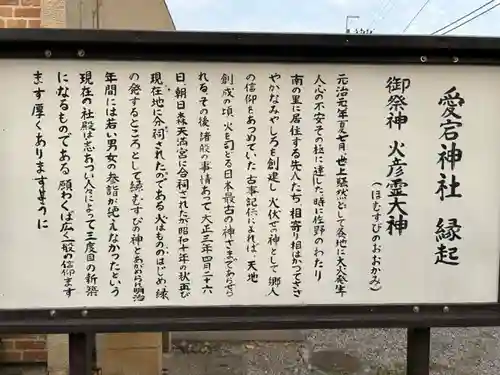 愛宕神社 縁起
御祭神 火彦霊大神
(ほむすびのおおかみ)
元治元年夏七月 世上騒然として落地に大火発生
人心の不安その極に達した時に佐野のわたり
南の里に居住する先人たち、相寄り相はかってささ
やかなみやしろを創建し 火伏せの神として 郷人
の信仰をあつめていた 古事記伝によれば 天地
創成の頃 火を司どる日本最古の神さまであらせら
れる その後 諸般の事情あって 大正三年四月二十六
日 朝日森天満宮に合祠されたが昭和十年の秋 再び
現在地に分祠されたのである 火はもののはじめ 縁
の発するところとして縁むすびの神とあがめられ明治
年間には若い男女の参詣が絶えなかったという
現在の社殿は志あつい人々によって三度目の新築
になるものである 願わくば広く一般の信仰ます
ます厚くありますように